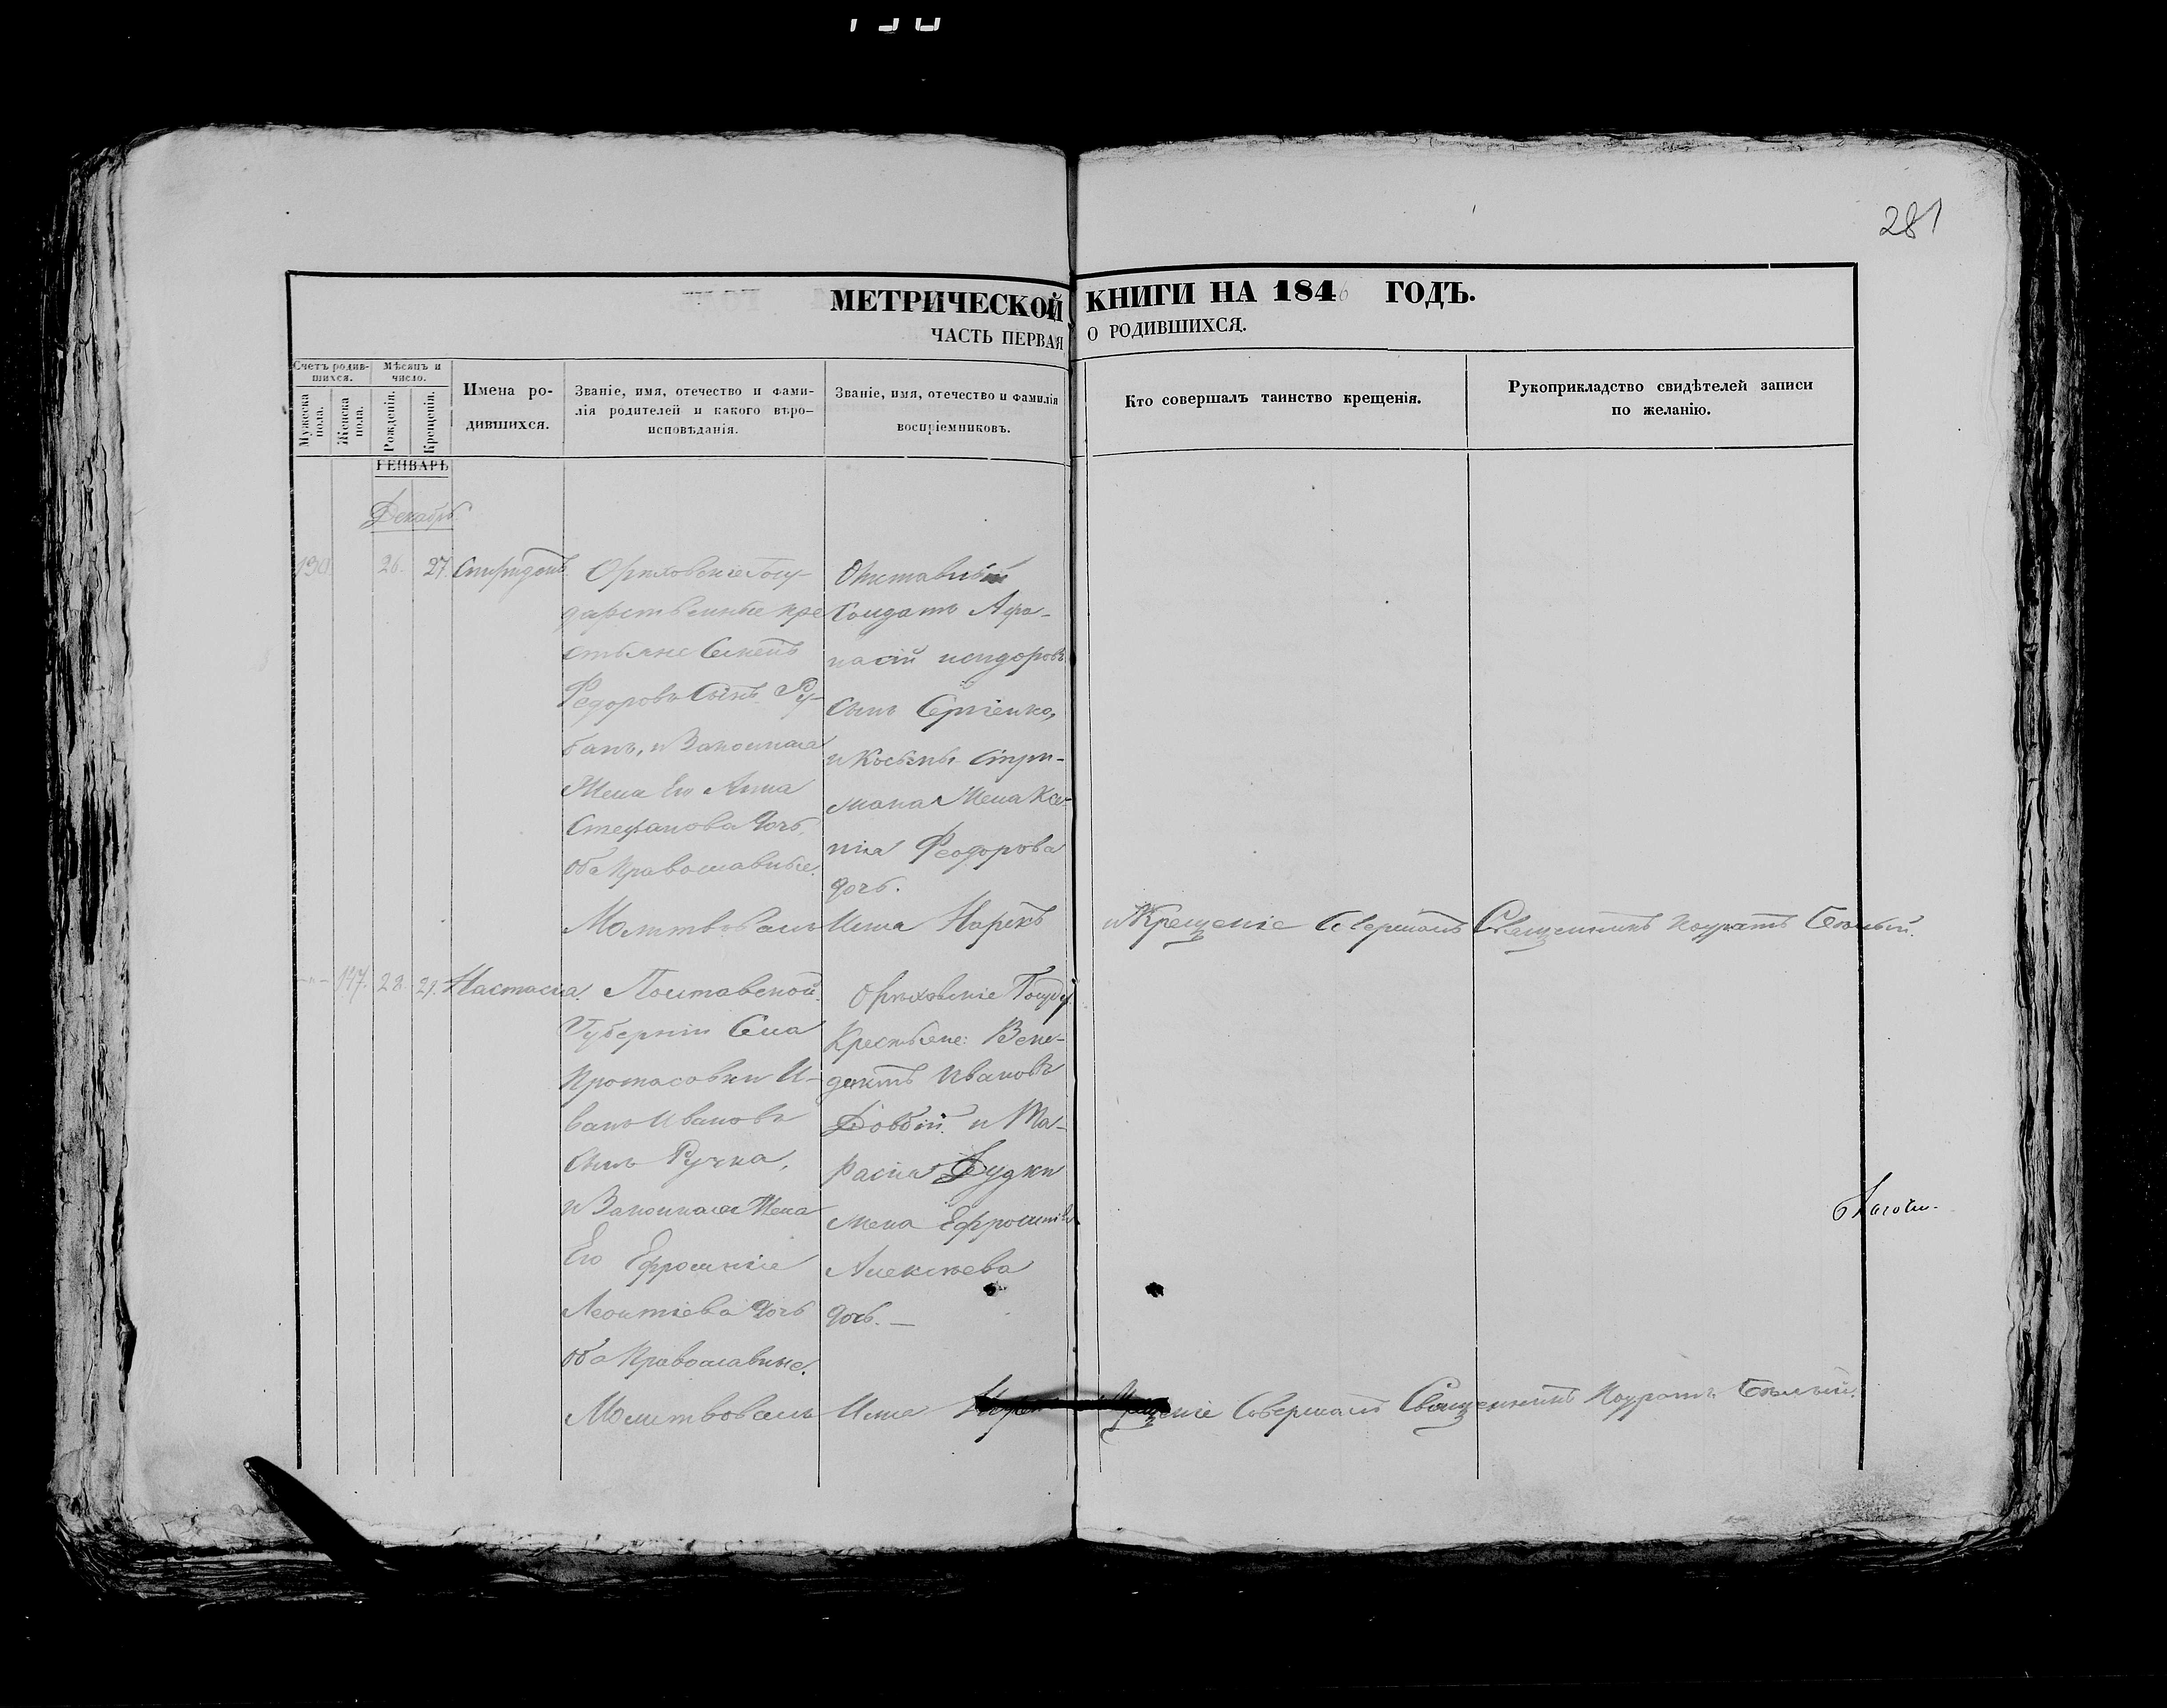 281
МЕТРИЧЕСКОЙ КНИГИ НА 1846 ГОДЪ.
ЧАСТЬ ПЕРВАЯ О РОДИВШИХСЯ.
Счетъ родив-
шихся.
Мужеска пола.
Женска пола.
Мѣсяцъ и
число.
Рожденія.
Крещенія.
Имена ро-
дившихся.
Званіе, имя, отечество и фами-
лія родителей и какого вѣро-
исповѣданія.
Званіе, имя, отечество и фамилія
воспріемниковъ.
Кто совершалъ таинство крещенія.
Рукоприкладство свидѣтелей записи
по желанію.
ГЕНВАРЬ
Декабрь
130 26. 27. Спиридонъ
Орѣховскіе Госу-
дарственные кре
стьяне Семенъ
Федоровъ Сынъ Ру-
банъ, и Законная
Жена Его Анна
Стефанова дочь,
оба Православные.
Отставный
Солдатъ Афа-
насій исидоровъ
Сынъ Сергіенко,
и Косьмы
Жена Ксе-
нія Феодорова
дочь.
Молитвовалъ Имя Нарекъ и Крещеніе Совершалъ Священникъ Кодратъ Белый.
-"- 147. 28. 29. Настасія.
Полтавской
Губерніи Села
Протасовки И-
ванъ Ивановъ
Сынъ Ручка,
и Законная Жена
Его Ефросинія
Леонтіева дочь
оба Православные.
Орѣховскіе Госуд:
Крестьяне: Вене-
диктъ Ивановъ
Довбій и Та-
расія Дудки
жена Ефросинія
Алексѣева
дочь. —
Молитвовалъ Имя Нарекъ и Крещеніе Совершалъ Священникъ Кодратъ Бѣлый.